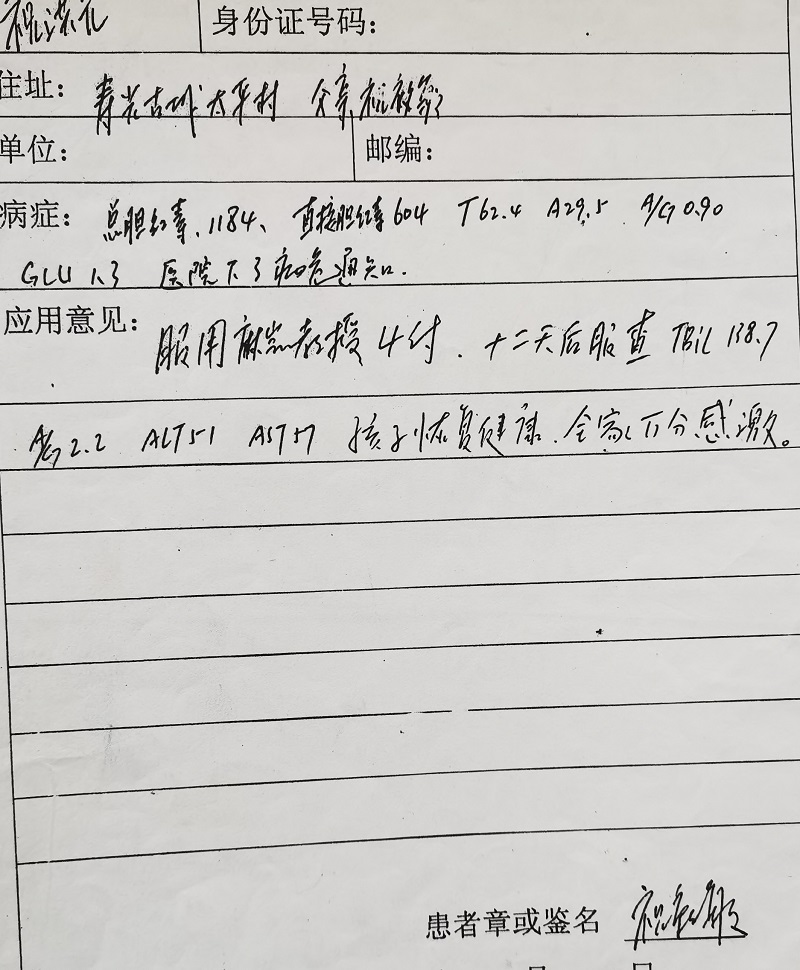 身份证号码：
住址： 寿光古城太平村
单位： 邮编：
病症： 总胆红素、1184、 直接胆红素604 T62.4 A29.5 A/G 0.90
GLU 1.3 医院下了病危通知.
应用意见： 服用 教授4付.十二天后服查 TBIL 138.7
A/G 2.2 ALT51 AST57 孩子恢复健康.全家万分感激。
患者章或鉴名
月 日